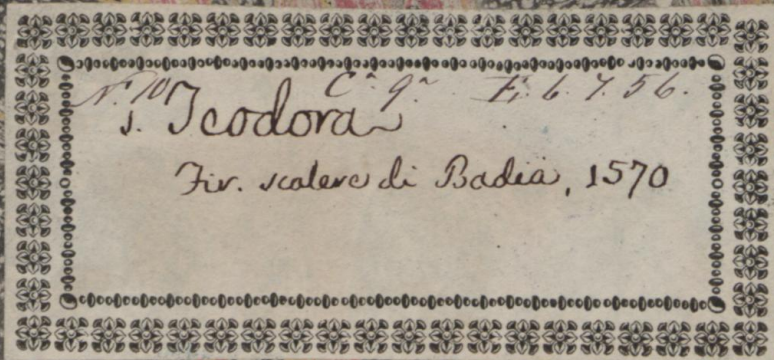 N. 10 C.ª 9.ª E. 6. 7. 56.
S. Teodora
Fir. scalere di Badia, 1570